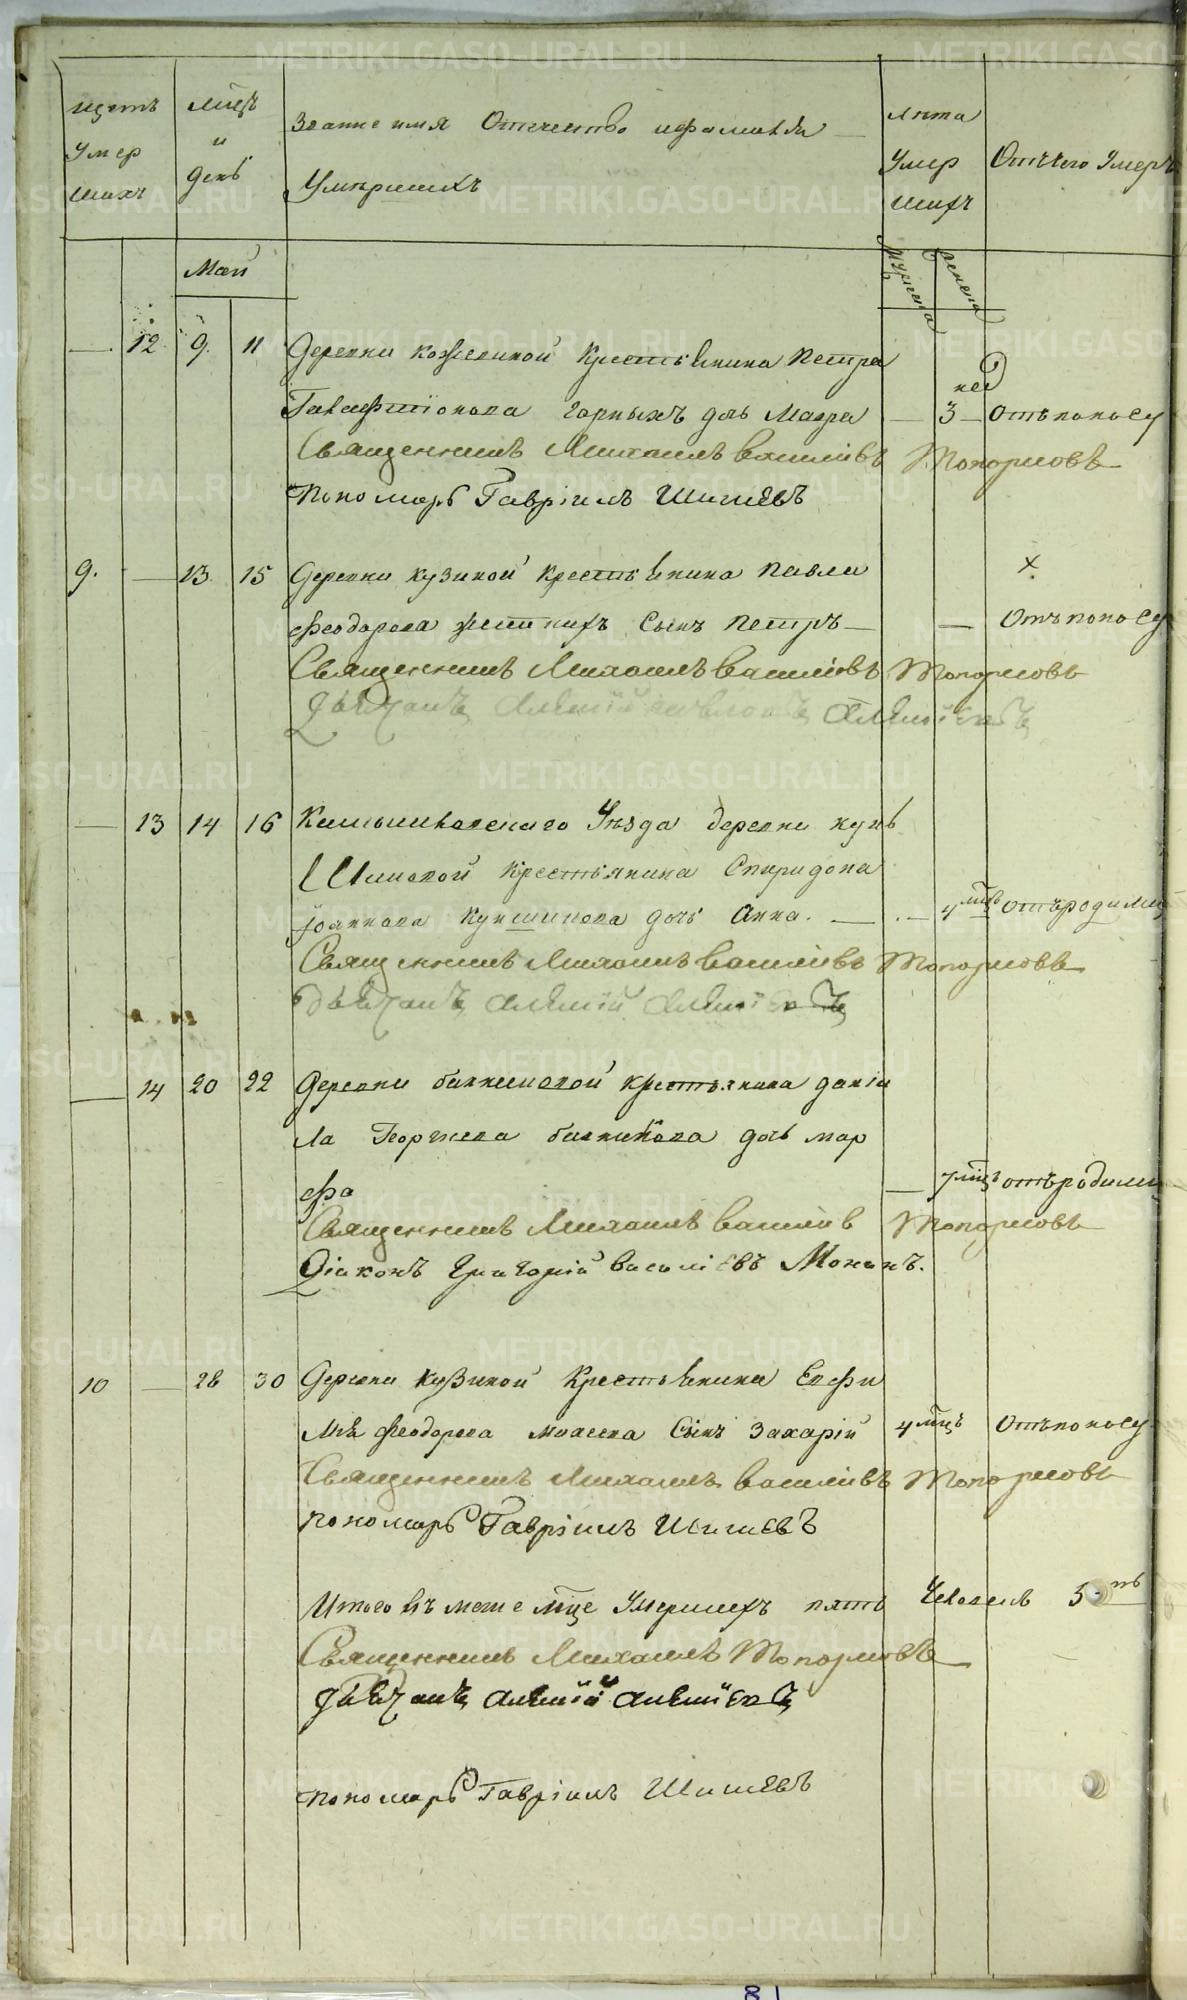 щетъ умер шихъ
мцъ и день
Званіе имя Отечество ифамилія
Умершихъ
лѣта Умер шихъ
Отъчего Умеръ
мужеска
женска
Май
12 9 11 Деревни кожевиной Крестьянина Петра
нед
Галафтіонова Горныхъ дочь Мавра — 3 — Отъпоносу
Священникъ Михаилъ Васильевъ Топорковъ
Пономарь Гавріилъ Шишевъ
9. — 13 15 Деревни кузиной крестьянина Павла
×
Феодорова сынъ Петръ — — Отъпоносу
Священникъ Михаилъ Васильевъ Топорковъ
Дьячокъ Алексій Алексіевъ
— 13 14 16 Камышловскаго Уѣзда деревни кунь
шиновой Крестьянина Спиридона
Іоаннова Куншинова дочь Анна. — 4 мцъ отъродимц
Священникъ Михаилъ Васильевъ Топорковъ
Дьячокъ Алексій Алексіевъ
— 14 20 22 Деревни крестьянина Даніи
ла Георгиева дочь мар
фа — 7 мцъ отъродими
Священникъ Михаилъ Васильев Топорковъ
Діаконъ Григорій Васильевъ Мокинъ.
10 — 28 30 Деревни Кузиной Крестьянина Евфи
мія Феодорова Сынъ Захарій 4 мцъ Отъпоносу
Священникъ Михаилъ Васильевъ Топорковъ
пономарь Гавріилъ Шишевъ
Итого въ маие мце Умершихъ пять Человекъ 5-ть
Священникъ Михаилъ Топорковъ
Дьячокъ Алексій Алексіевъ
пономарь Гавріилъ Шишевъ
81
METRIKI.GASO-URAL.RU